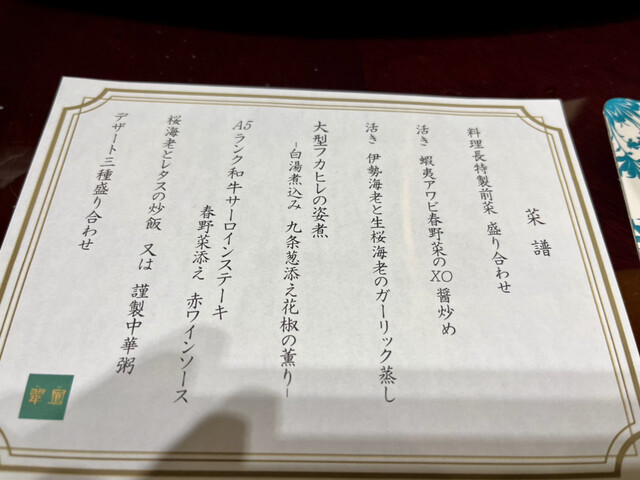 菜譜
料理長特製前菜 盛り合わせ
活き 蝦夷アワビ春野菜のXO醤炒め
活き 伊勢海老と生桜海老のガーリック蒸し
大型フカヒレの姿煮
–白湯煮込み 九条葱添え花椒の薫り–
A5ランク和牛サーロインステーキ
春野菜添え 赤ワインソース
桜海老とレタスの炒飯 又は 謹製中華粥
デザート三種盛り合わせ